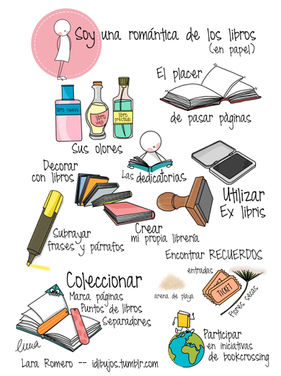 Soy una romántica de los libros
(en papel)
El placer
de pasar páginas
Sus olores
Decorar
con libros
Las dedicatorias
Utilizar
Ex libris
Subrayar
frases y párrafos
Crear
mi propia librería
Encontrar RECUERDOS
entradas
TICKET
arena de playa
flores secas
Coleccionar
Marca páginas
Puntos de libros
Separadores
Participar
en iniciativas
de bookcrossing
Lara Romero -- idibujos.tumblr.com